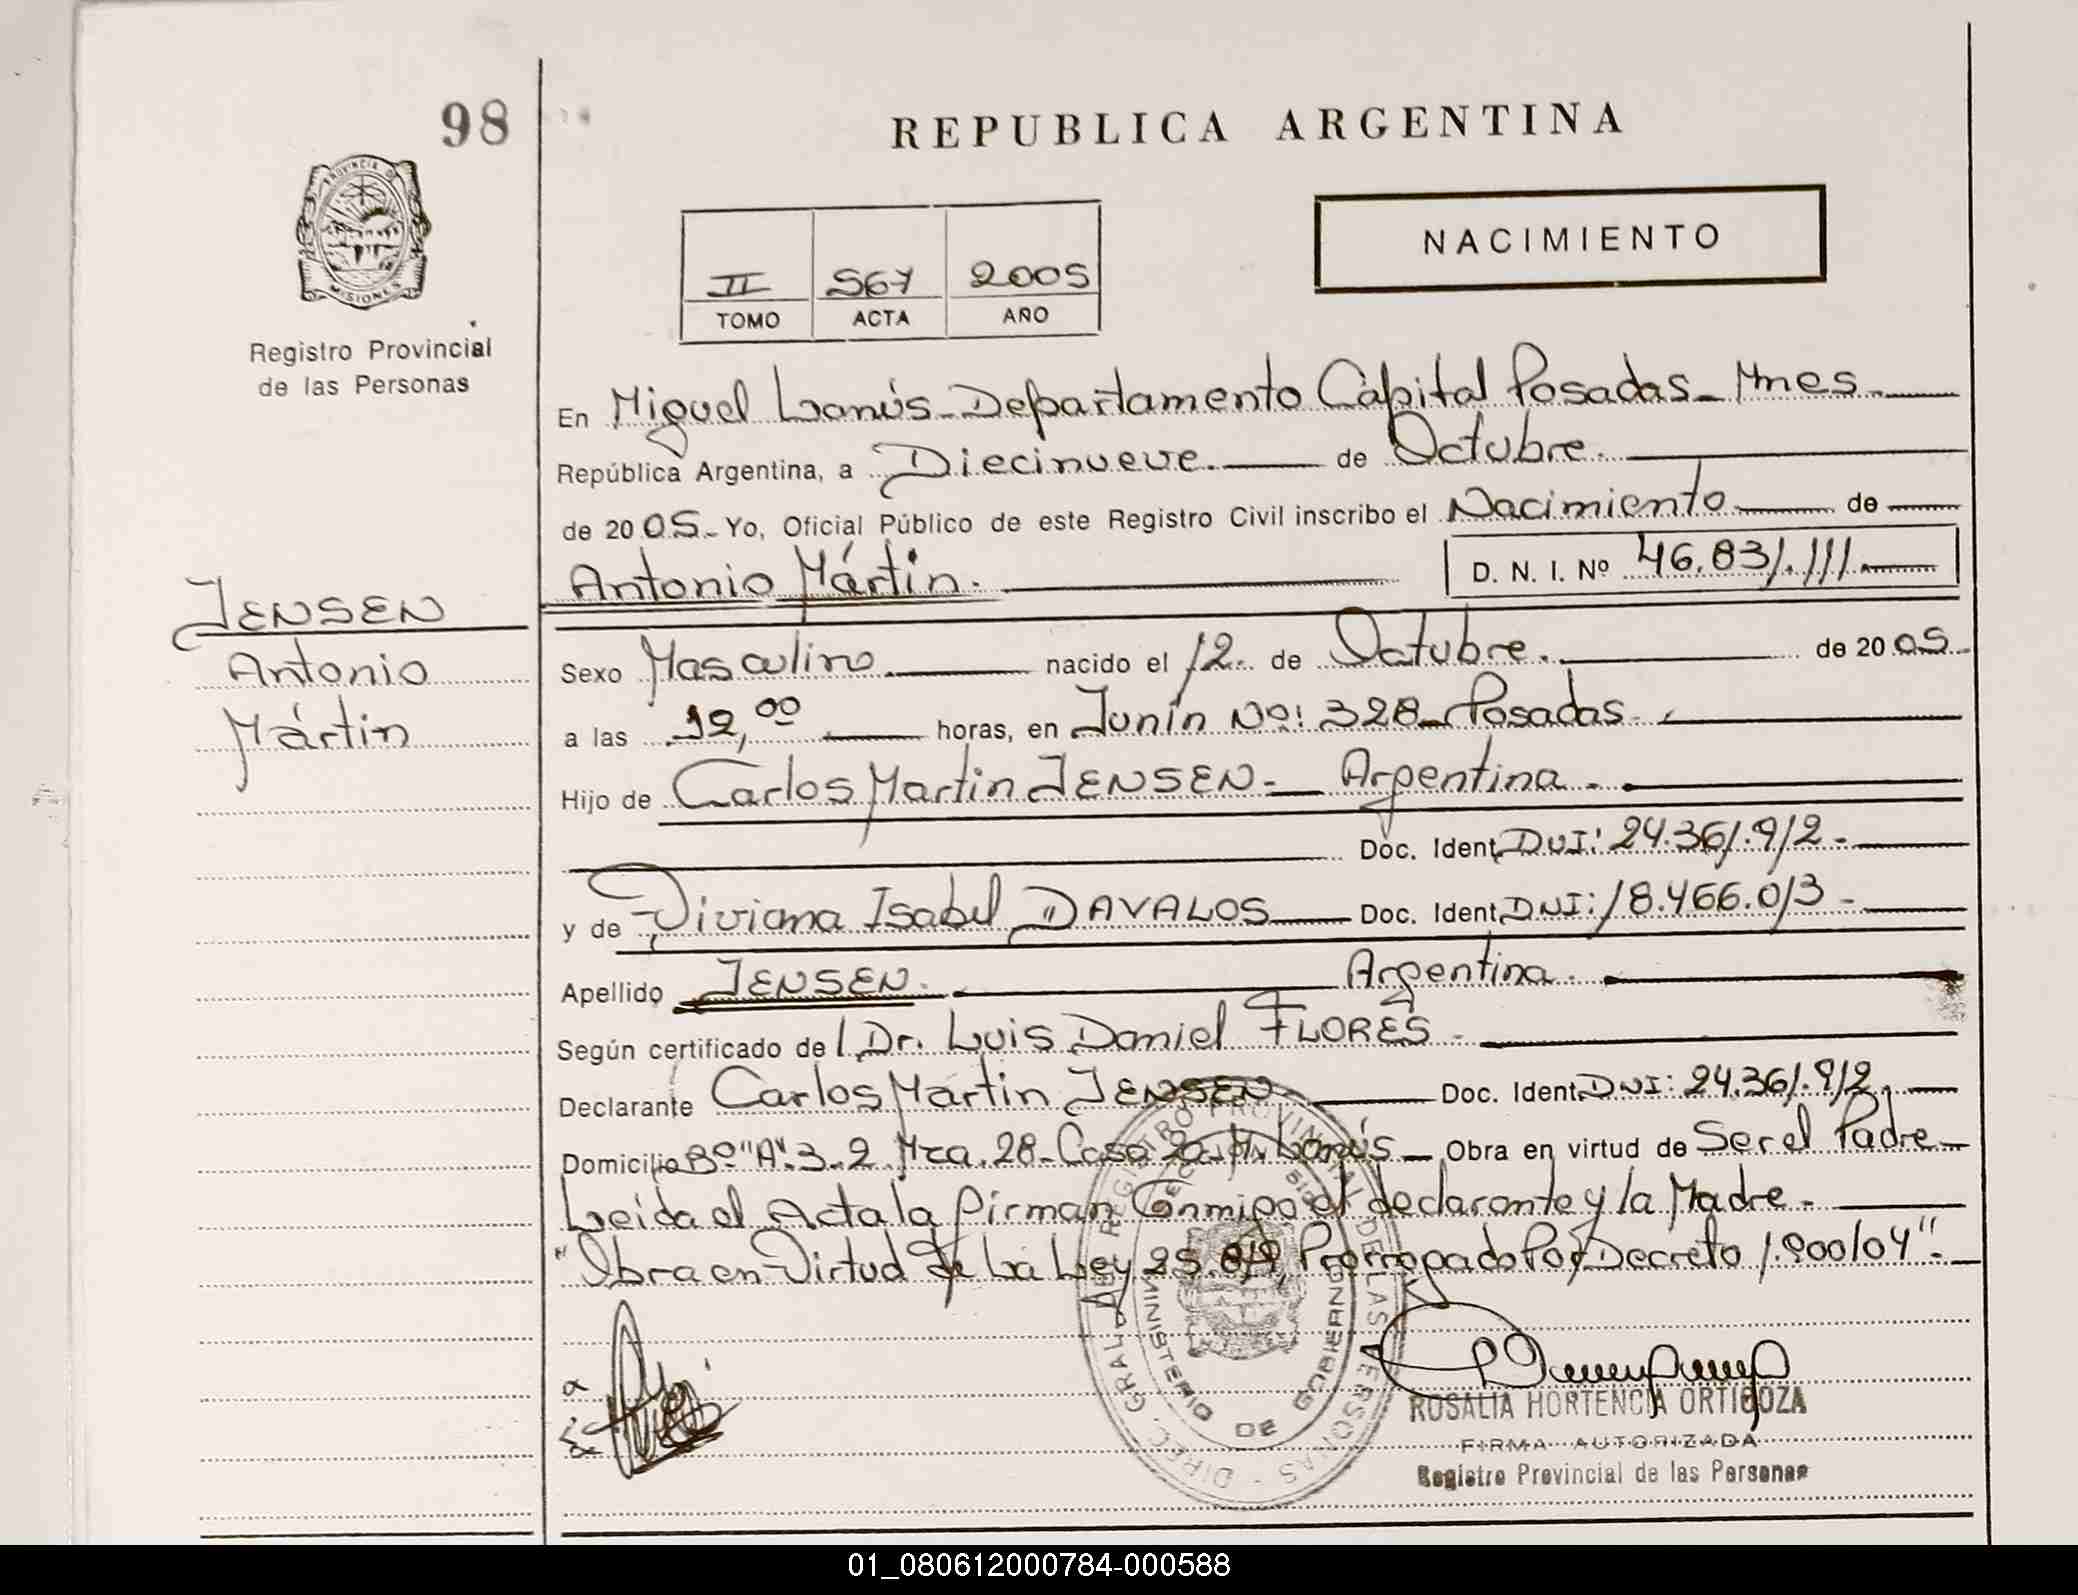 98
REPUBLICA ARGENTINA
PROVINCIA DE
MISIONES
Registro Provincial
de las Personas
NACIMIENTO
II 567 2005
TOMO ACTA AÑO
En Miguel Lanús - Departamento Capital Posadas - Mnes.
República Argentina, a Diecinueve. de Octubre.
de 2005.- Yo, Oficial Público de este Registro Civil inscribo el Nacimiento de
Antonio Mártin. D. N. I. Nº 46.831.111
JENSEN
Antonio
Mártin
Sexo Masculino nacido el 12. de Octubre. de 2005.
a las 12,00 horas, en Junín Nº: 328 - Posadas.
Hijo de Carlos Martin JENSEN - Argentina.
Doc. Ident. DNI: 24.361.912 -
y de Viviana Isabel DAVALOS Doc. Ident. DNI: 18.466.013 -
Apellido JENSEN. Argentina.
Según certificado de Dr. Luis Daniel FLORES.
Declarante Carlos Martin JENSEN Doc. Ident. DNI: 24.361.912.
Domicilio Bº "A" 3.2 Mza. 28 - Casa M. Lanús - Obra en virtud de Ser el Padre -
Leida el Acta la firman Conmigo el declarante y la Madre.
"Obra en Virtud de La Ley 25.819, Prorrogado Por Decreto 1.900/04".
DIREC. GRAL. DEL REGISTRO PROVINCIAL DE LAS PERSONAS
MINISTERIO DE GOBIERNO
ROSALIA HORTENCIA ORTIGOZA
FIRMA AUTORIZADA
Registro Provincial de las Personas
01_080612000784-000588